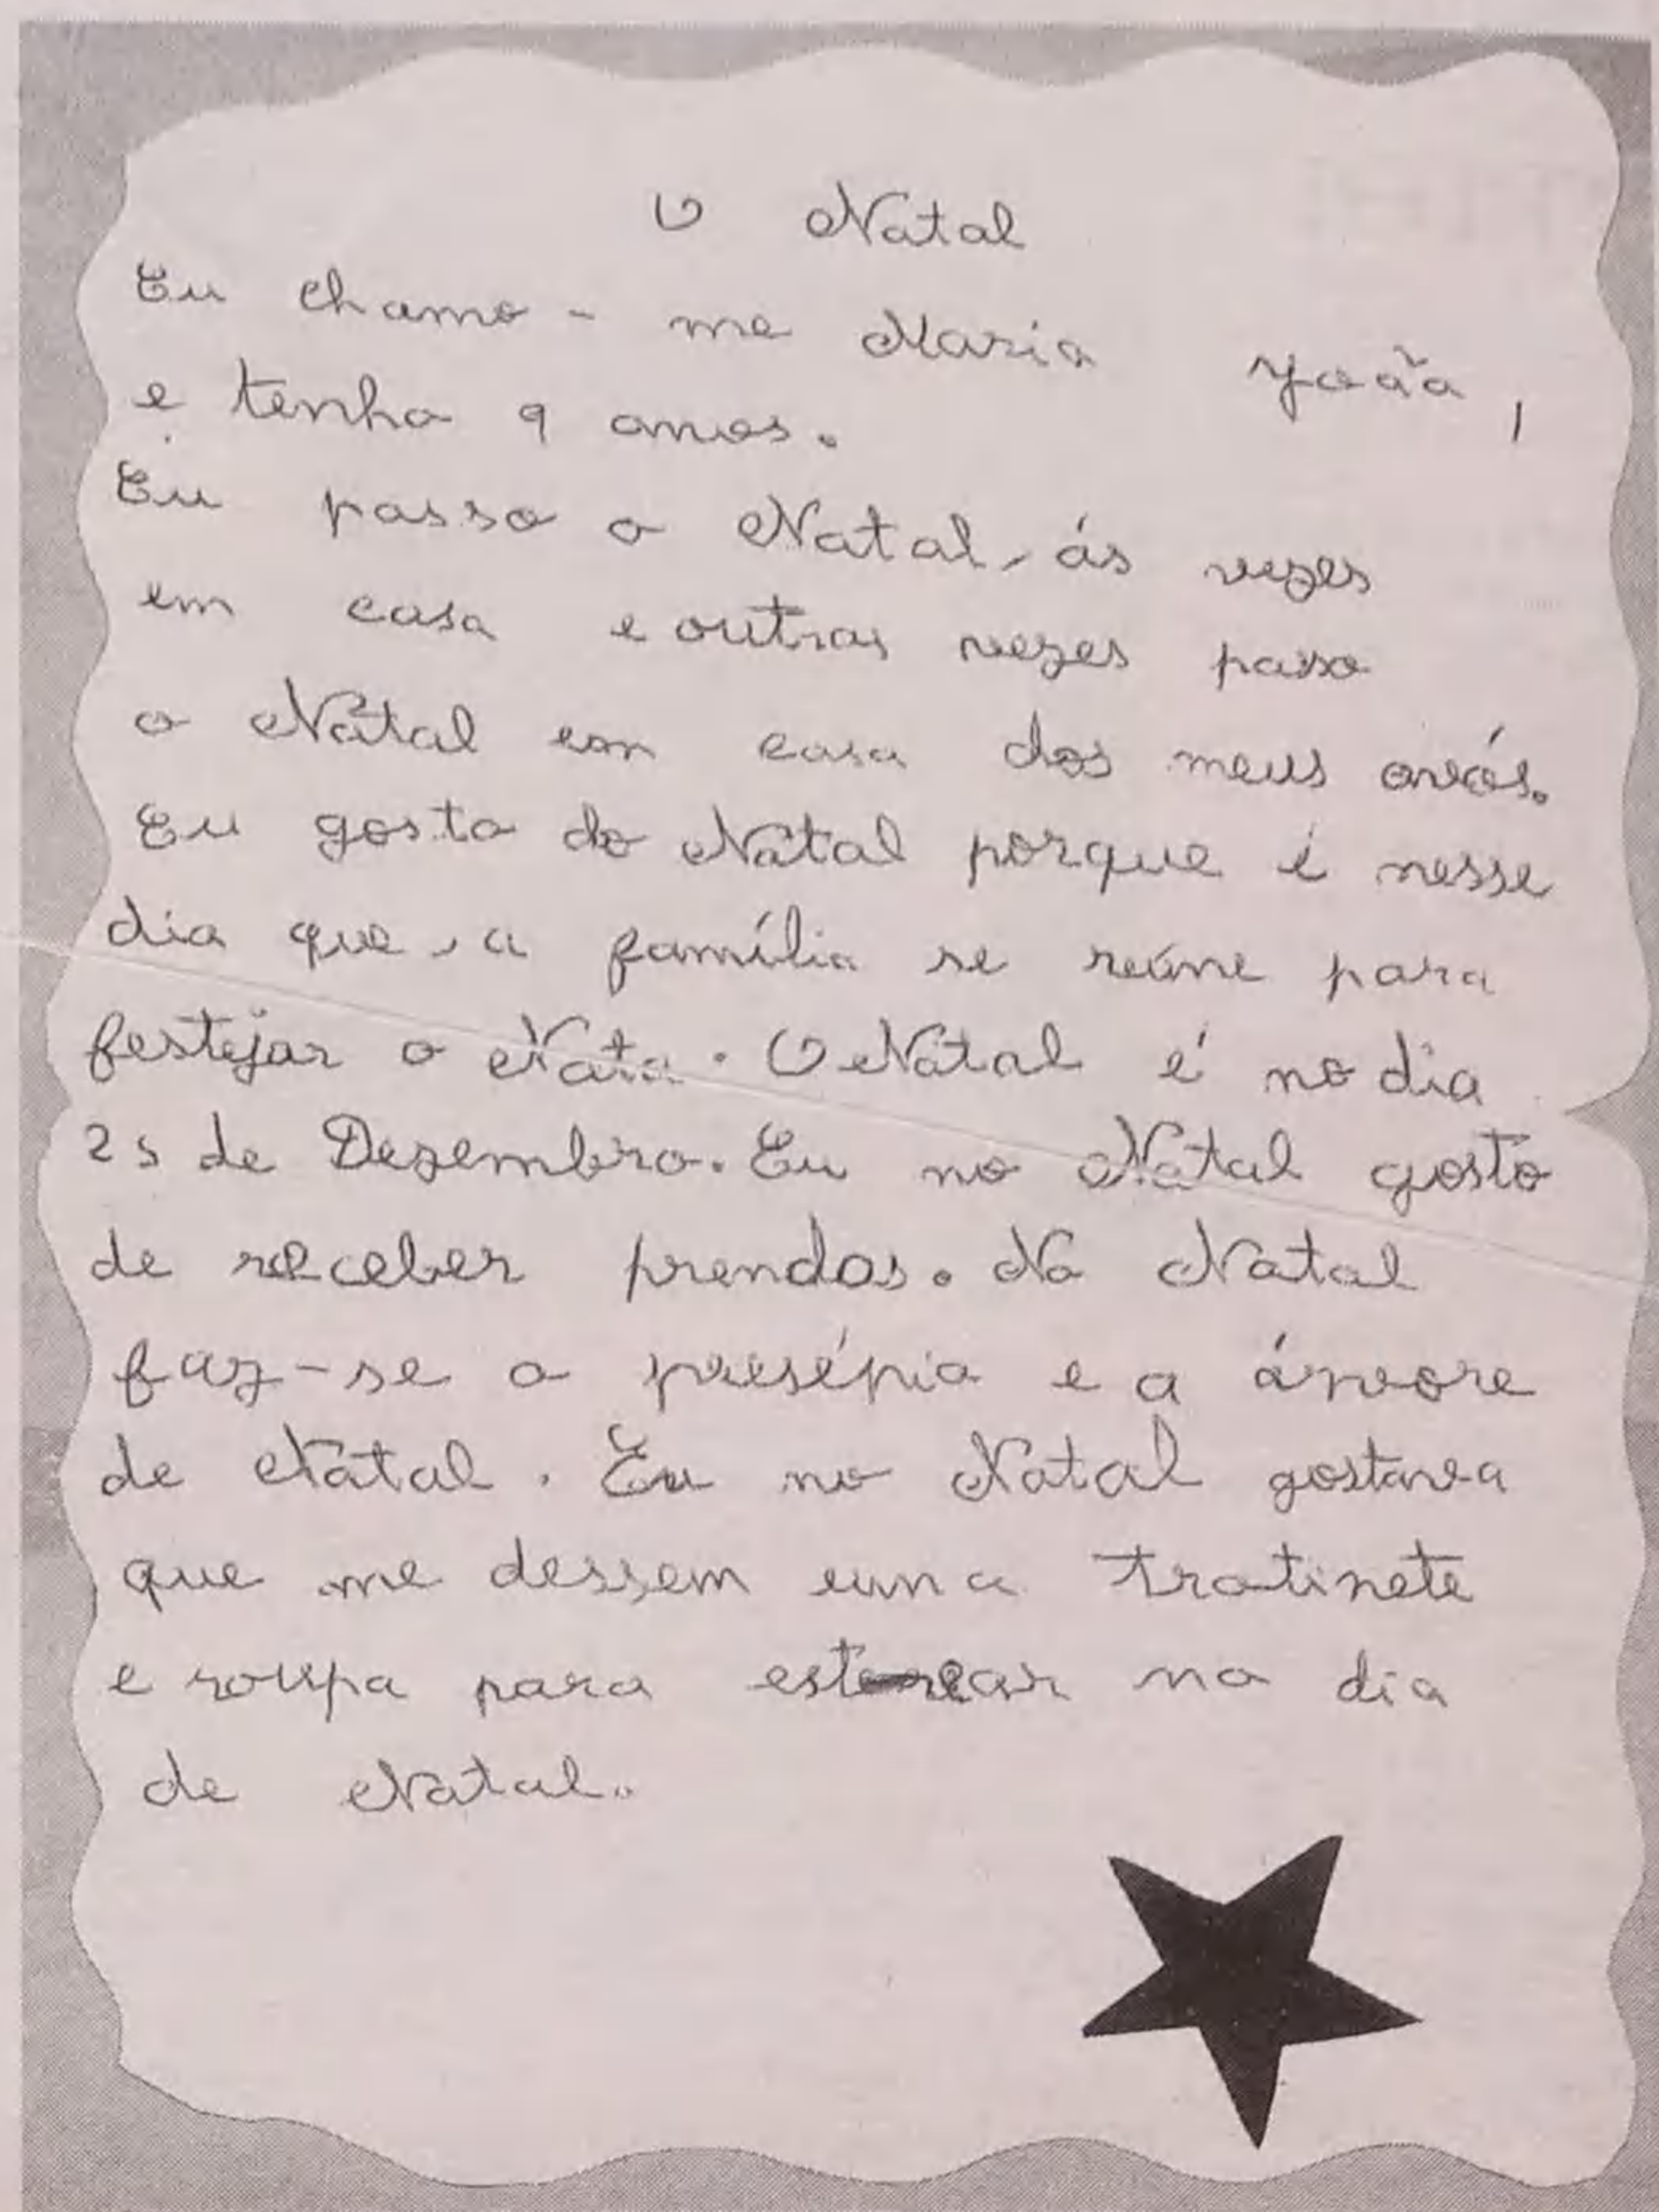 O Natal
Eu chamo-me Maria João,
e tenho 9 anos.
Eu passo o Natal, ás vezes
em casa e outras vezes passo
o Natal em casa dos meus avós.
Eu gosto do Natal porque é nesse
dia que, a família se reúne para
festejar o Nata. O Natal é no dia
25 de Dezembro. Eu no Natal gosto
de receber prendas. No Natal
faz-se o presépio e a árvore
de Natal. Eu no Natal gostava
que me dessem uma trotinete
e roupa para no dia
de Natal.